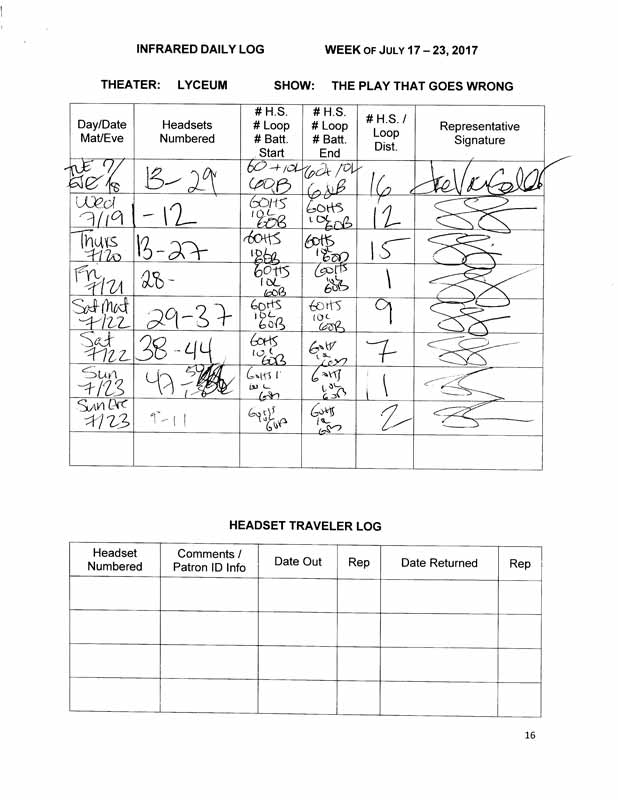 INFRARED DAILY LOG WEEK OF JULY 17 – 23, 2017
THEATER: LYCEUM SHOW: THE PLAY THAT GOES WRONG
Day/Date Mat/Eve Headsets Numbered # H.S. # Loop # Batt. Start # H.S. # Loop # Batt. End # H.S. / Loop Dist. Representative Signature
TUE 7/18 EVE 13-29 60 + 10L 60B 60 + 10L 60B 16
Wed 7/19 1-12 60HS 10L 60B 60HS 10L 60B 12
Thurs 7/20 13-27 60HS 10L 60B 60HS 10L 60B 15
Fri 7/21 28- 60HS 10L 60B 60HS 10L 60B 1
Sat Mat 7/22 29-37 60HS 10L 60B 60HS 10L 60B 9
Sat 7/22 38-44 60HS 10L 60B 60HS 10L 60B 7
Sun 7/23 47- 60HS 10L 60B 60HS 10L 60B
Sun Eve 7/23 9-11 60HS 10L 60B 60HS 60B 2
HEADSET TRAVELER LOG
Headset Numbered Comments / Patron ID Info Date Out Rep Date Returned Rep
16